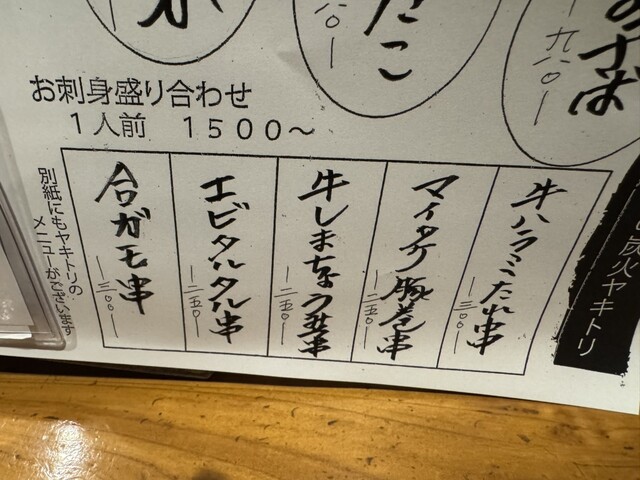 たこ
一八〇一
一九八〇一
のすば
お刺身盛り合わせ
1人前 1500～
炭火ヤキトリ
牛ハラミたれ串
一三〇〇一
マイタケ豚巻串
一二五〇一
牛しまちょう串
一二五〇一
エビタルタル串
一二五〇一
合ガモ串
一三〇〇一
別紙にもヤキトリの
メニューがございます